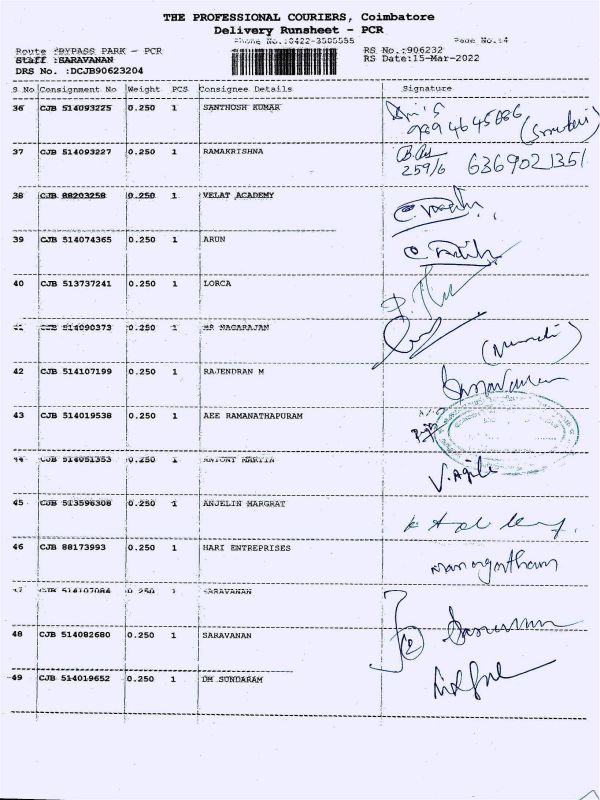 THE PROFESSIONAL COURIERS, Coimbatore
Delivery Runsheet - PCR
Phone No.:0422-3505555 Page No.:4
Route :BYPASS PARK - PCR RS No.:906232
Staff :SARAVANAN RS Date:15-Mar-2022
DRS No. :DCJB90623204
S No Consignment No Weight PCS Consignee Details Signature
36 CJB 514093225 0.250 1 SANTHOSH KUMAR
37 CJB 514093227 0.250 1 RAMAKRISHNA
259/6 6369021351
38 CJB 88203258 0.250 1 VELAT ACADEMY
39 CJB 514074365 0.250 1 ARUN
40 CJB 513737241 0.250 1 LORCA
41 CJB 514090373 0.250 1 MR NAGARAJAN
42 CJB 514107199 0.250 1 RAJENDRAN M
43 CJB 514019538 0.250 1 AEE RAMANATHAPURAM
44 CJB 514051353 0.250 1 ANTONY MARTIN
V.Agili
45 CJB 513596308 0.250 1 ANJELIN MARGRAT
46 CJB 88173993 0.250 1 HARI ENTREPRISES
47 CJB 514107084 0.250 1 SARAVANAN
48 CJB 514082680 0.250 1 SARAVANAN
49 CJB 514019652 0.250 1 DM SUNDARAM